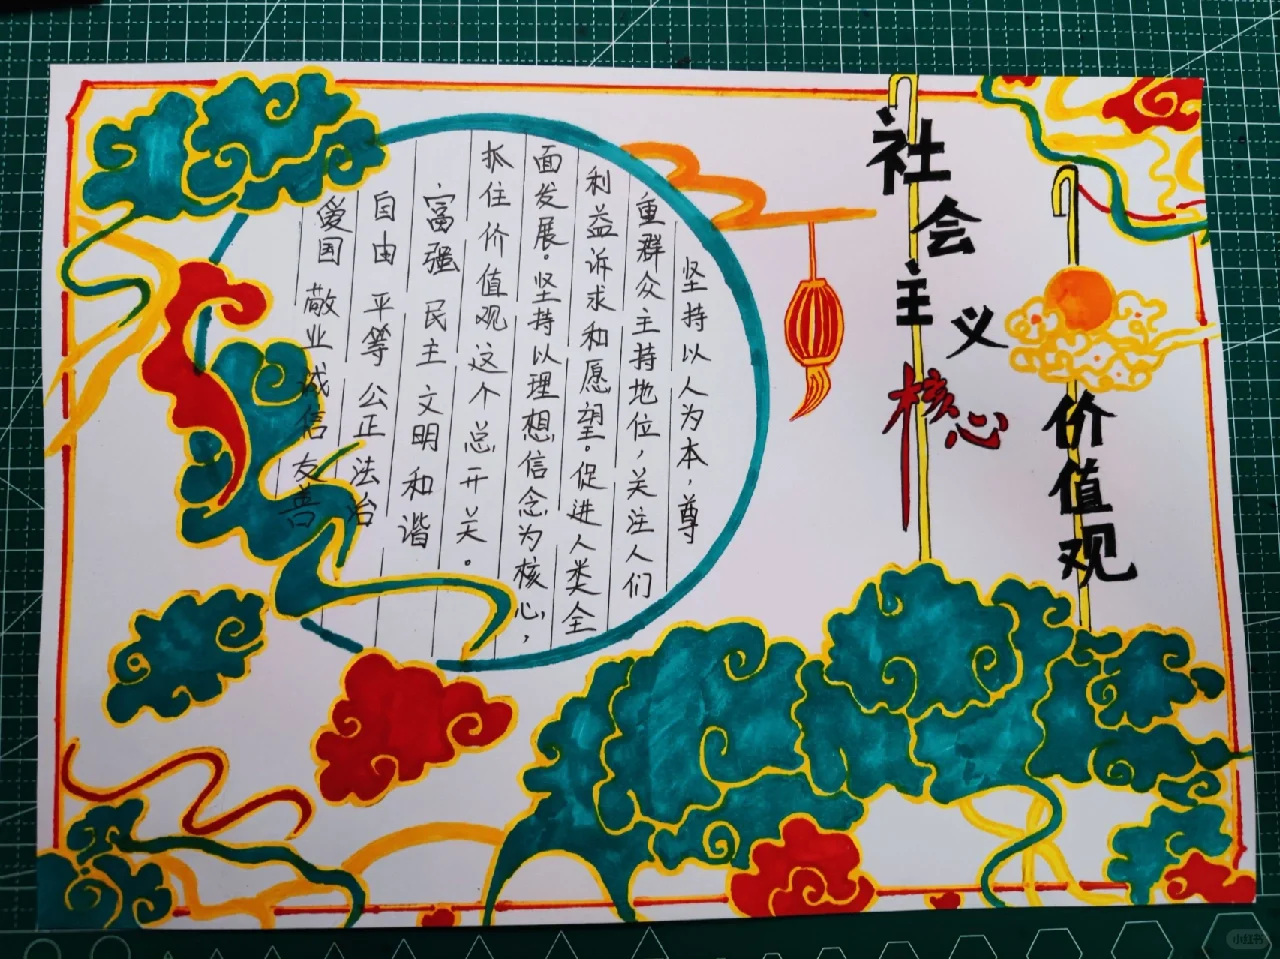 社会主义
核心
价值观
坚持以人为本，尊
重群众主持地位，关注人们
利益诉求和愿望。促进人类全
面发展。坚持以理想信念为核心，
抓住价值观这个总开关。
富强 民主 文明 和谐
自由 平等 公正 法治
爱国 敬业 诚信 友善
小红书